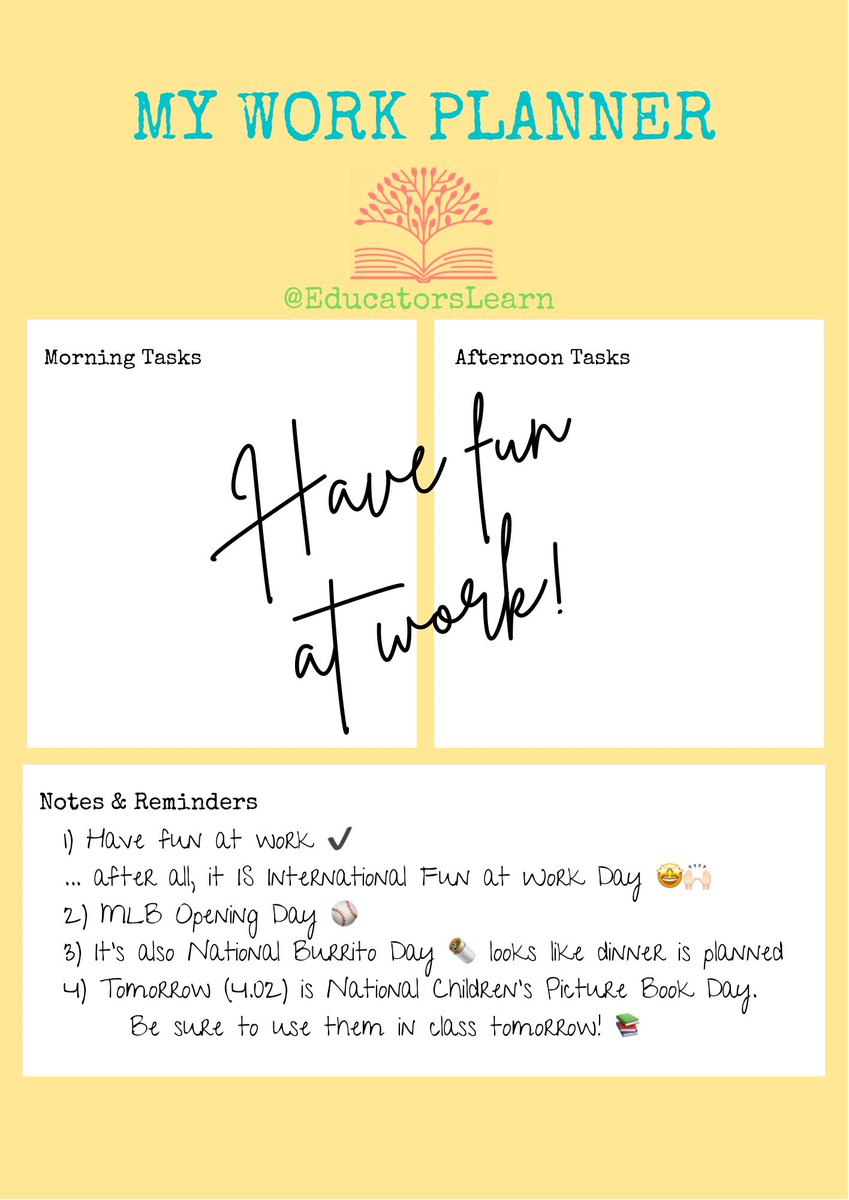 MY WORK PLANNER
@EducatorsLearn
Morning Tasks
Afternoon Tasks
Have fun
at work!
Notes & Reminders
1) Have fun at work ✔️
... after all, it IS International Fun at Work Day 🤩🙌🏻
2) MLB Opening Day ⚾
3) It's also National Burrito Day 🌯 looks like dinner is planned
4) Tomorrow (4.02) is National Children's Picture Book Day.
Be sure to use them in class tomorrow! 📚